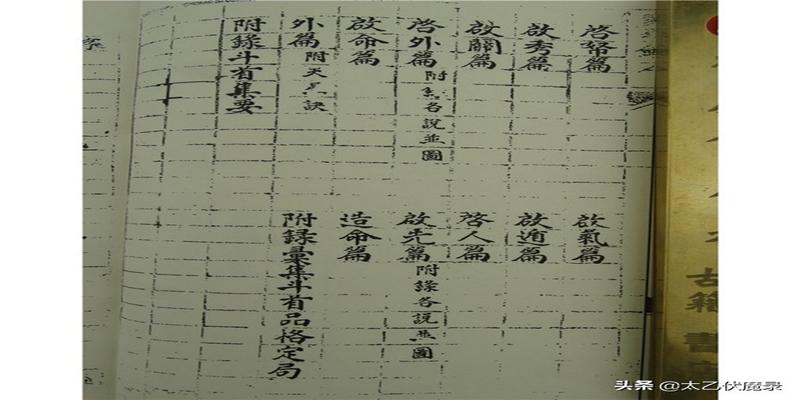 啓篇
啟氣篇
啟秀篇
啟遁篇
啟關篇
啓人篇
啓外篇 附各說並圖
啟先篇 附錄各說並圖
啟命篇
造命篇
外篇 附天訣
附錄彙集斗首品格定局
附錄斗首集要
古籍書
头条 @太乙伏魔录